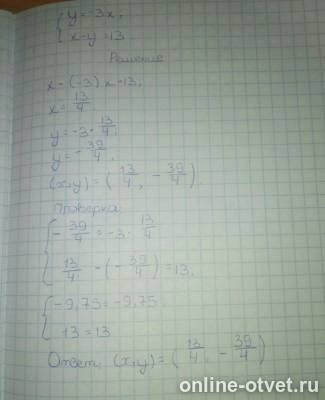 { y=-3x,
{ x-y=13.
Решение
x-(-3)x=13,
x=13/4
y=-3·13/4,
y=-39/4,
(x,y)=(13/4, -39/4)
Проверка
{ -39/4=-3·13/4
{ 13/4-(-39/4)=13,
{ -9,75=-9,75
{ 13=13
Ответ: (x,y)=(13/4, -39/4)
online-otvet.ru